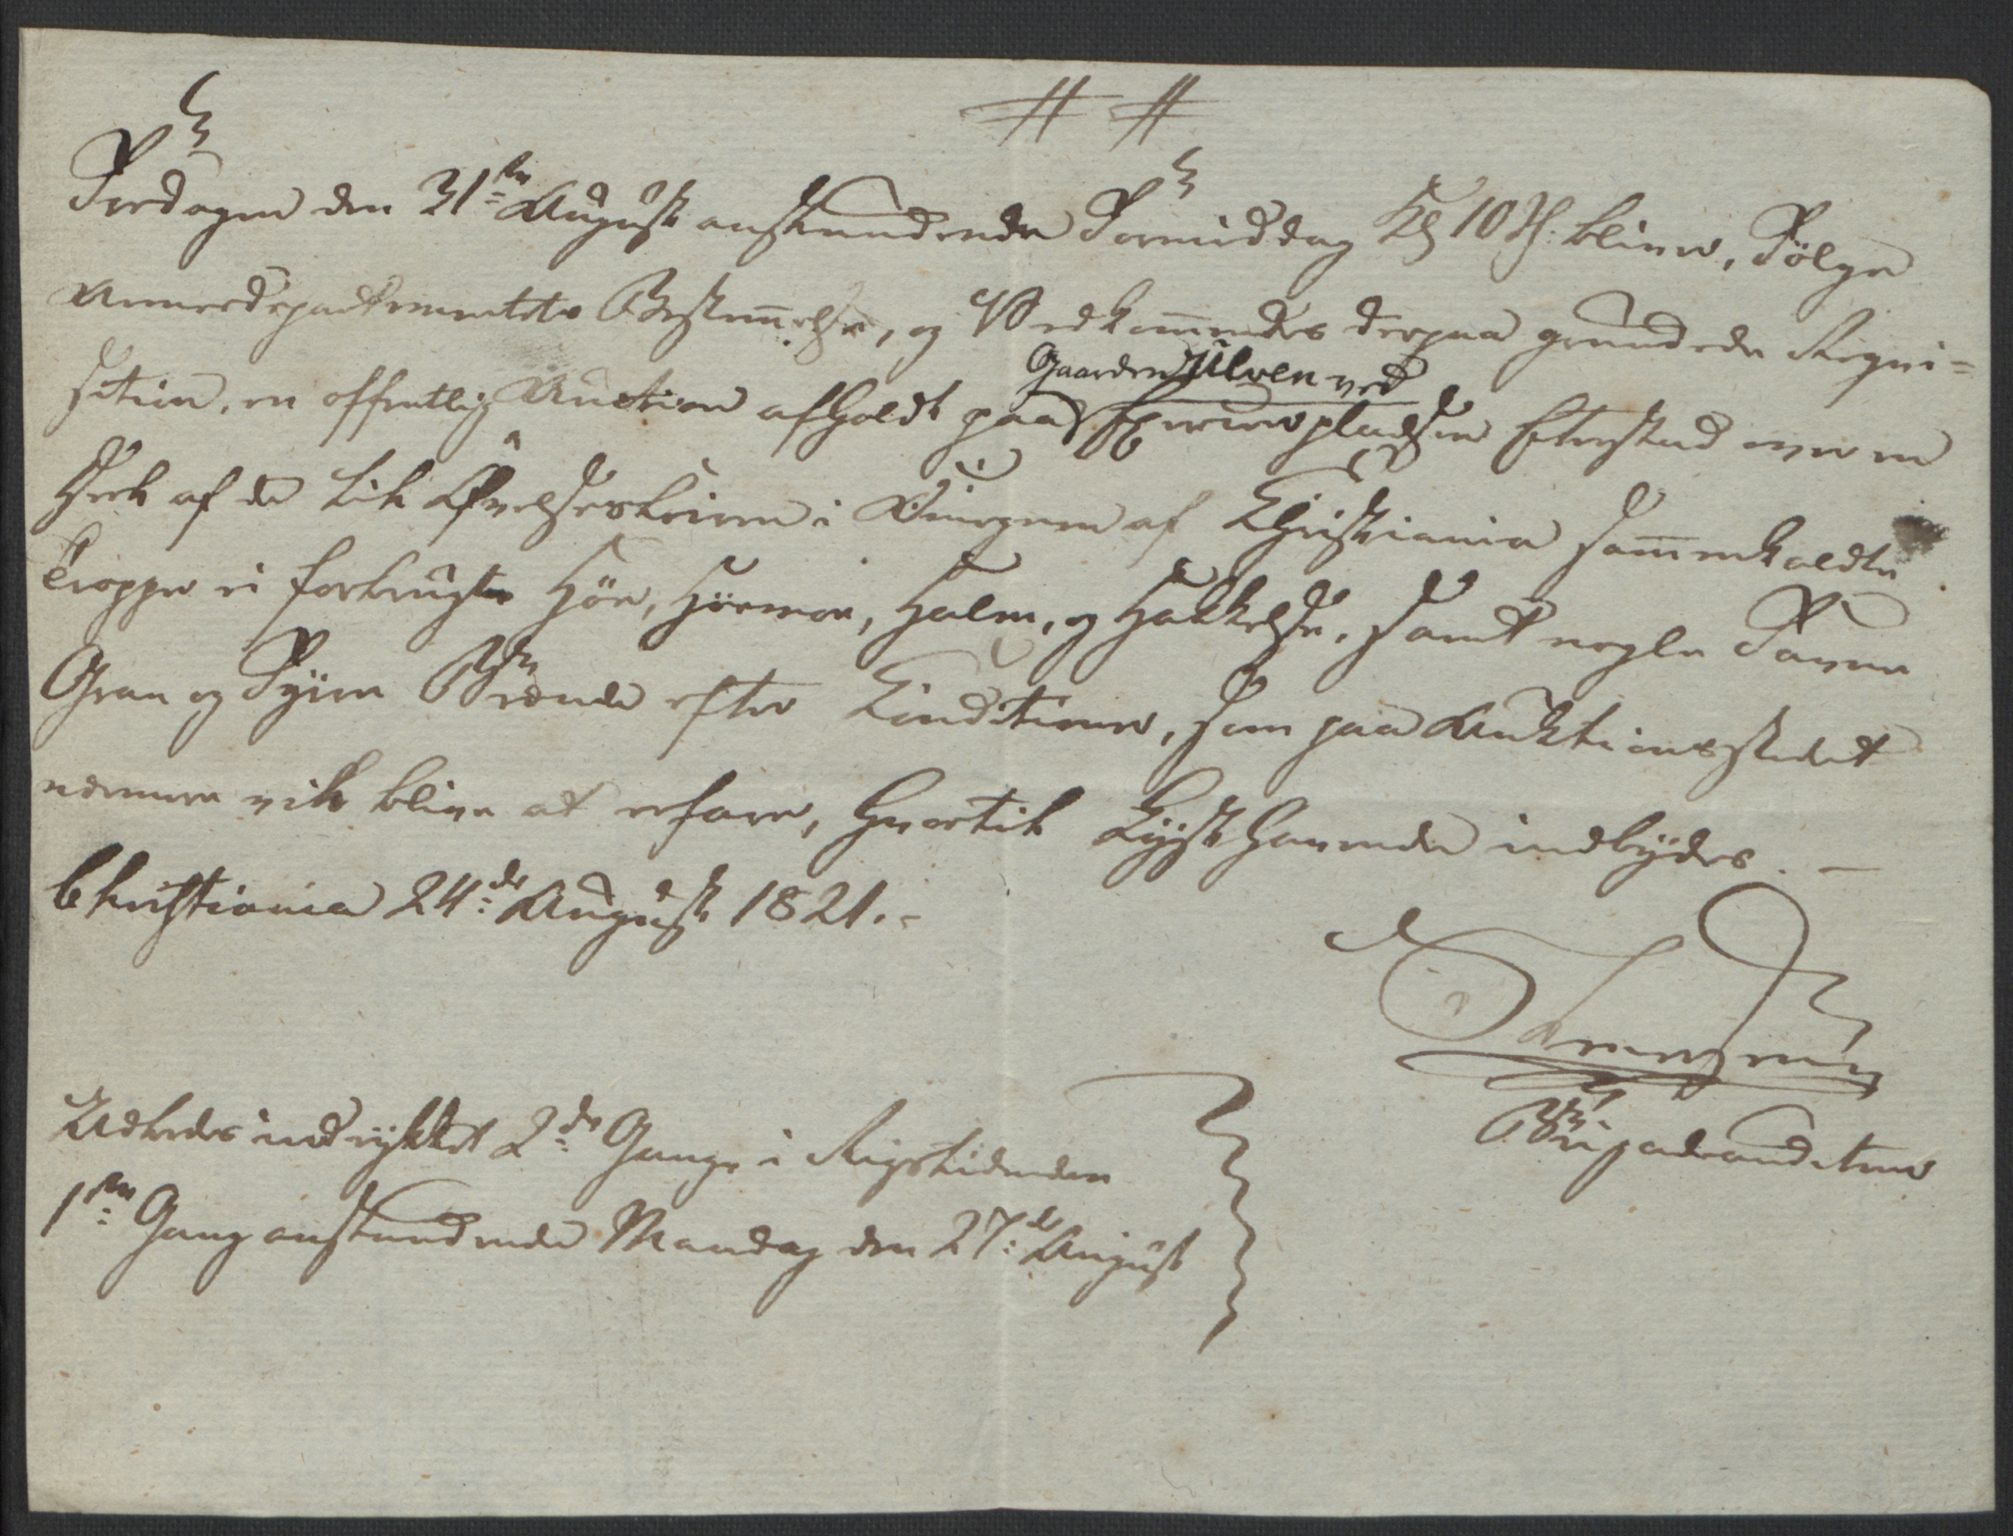 Fredagen den 31te August anstundende Formiddag Kl 10 Sl: bliver, Følge
Armeedepartementets Bestem̅else, og Vedkom̅endes derpaa grundede Reqvi=
sition, en offentlig Auction afholdt paa Gaarden Ulven ved Exerceerpladsen Etterstad over en
Deel af de til Øvelsesleiren i Nærheden af Christiania sam̅enkaldte
Tropper ei forbrugte Höe, Höemoe, Halm, og Hakkelse, samt nogle Favne
Gran og Fyrre Brænde efter Conditioner, som paa Auktionsstedet
nærmere vil blive at erfare, hvortil Lysthavende indbydes. –
Christiania 24de August 1821.-
Brigadeauditeur
Udbedes indrykket 2de Gange i Rigstidenden
1ste Gang anstundende Mandag den 27de August